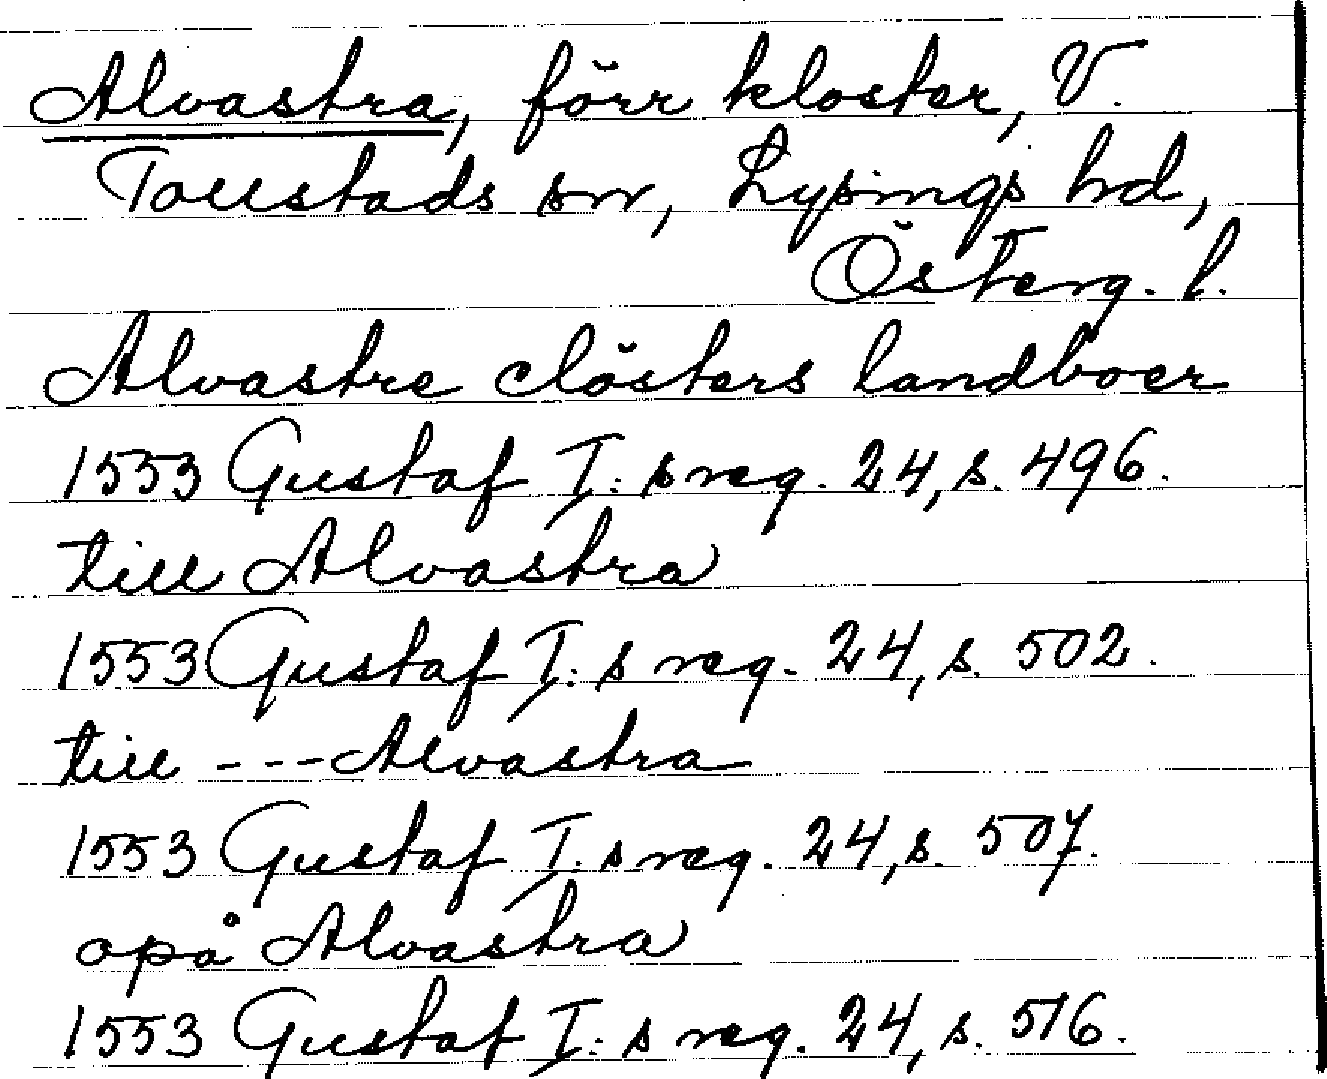 Alvastra, förr kloster, V.
Tollstads sn, Lysings hd,
Österg. l.
Alvastre clösters landboer
1553 Gustaf I:s reg. 24, s. 496.
till Alvastra
1553 Gustaf I:s reg. 24, s. 502.
till --- Alvastra
1553 Gustaf I:s reg. 24, s. 507.
opå Alvastra
1553 Gustaf I:s reg. 24, s. 516.